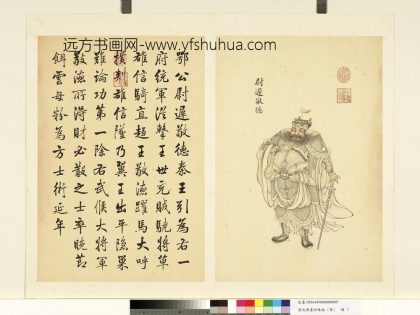 远方书画网- www.yfshuhua.com
尉遲敬德
鄂公尉遲敬德秦王引為右一
府統軍從擊王世充賊驍將單
雄信騎直趨王敬德躍馬大呼
橫刺雄信墜乃翼王出平隱巢
難論功第一除右武候大將軍
敬德所得財必散之士卒晚節
餌雲母粉為方士術延年